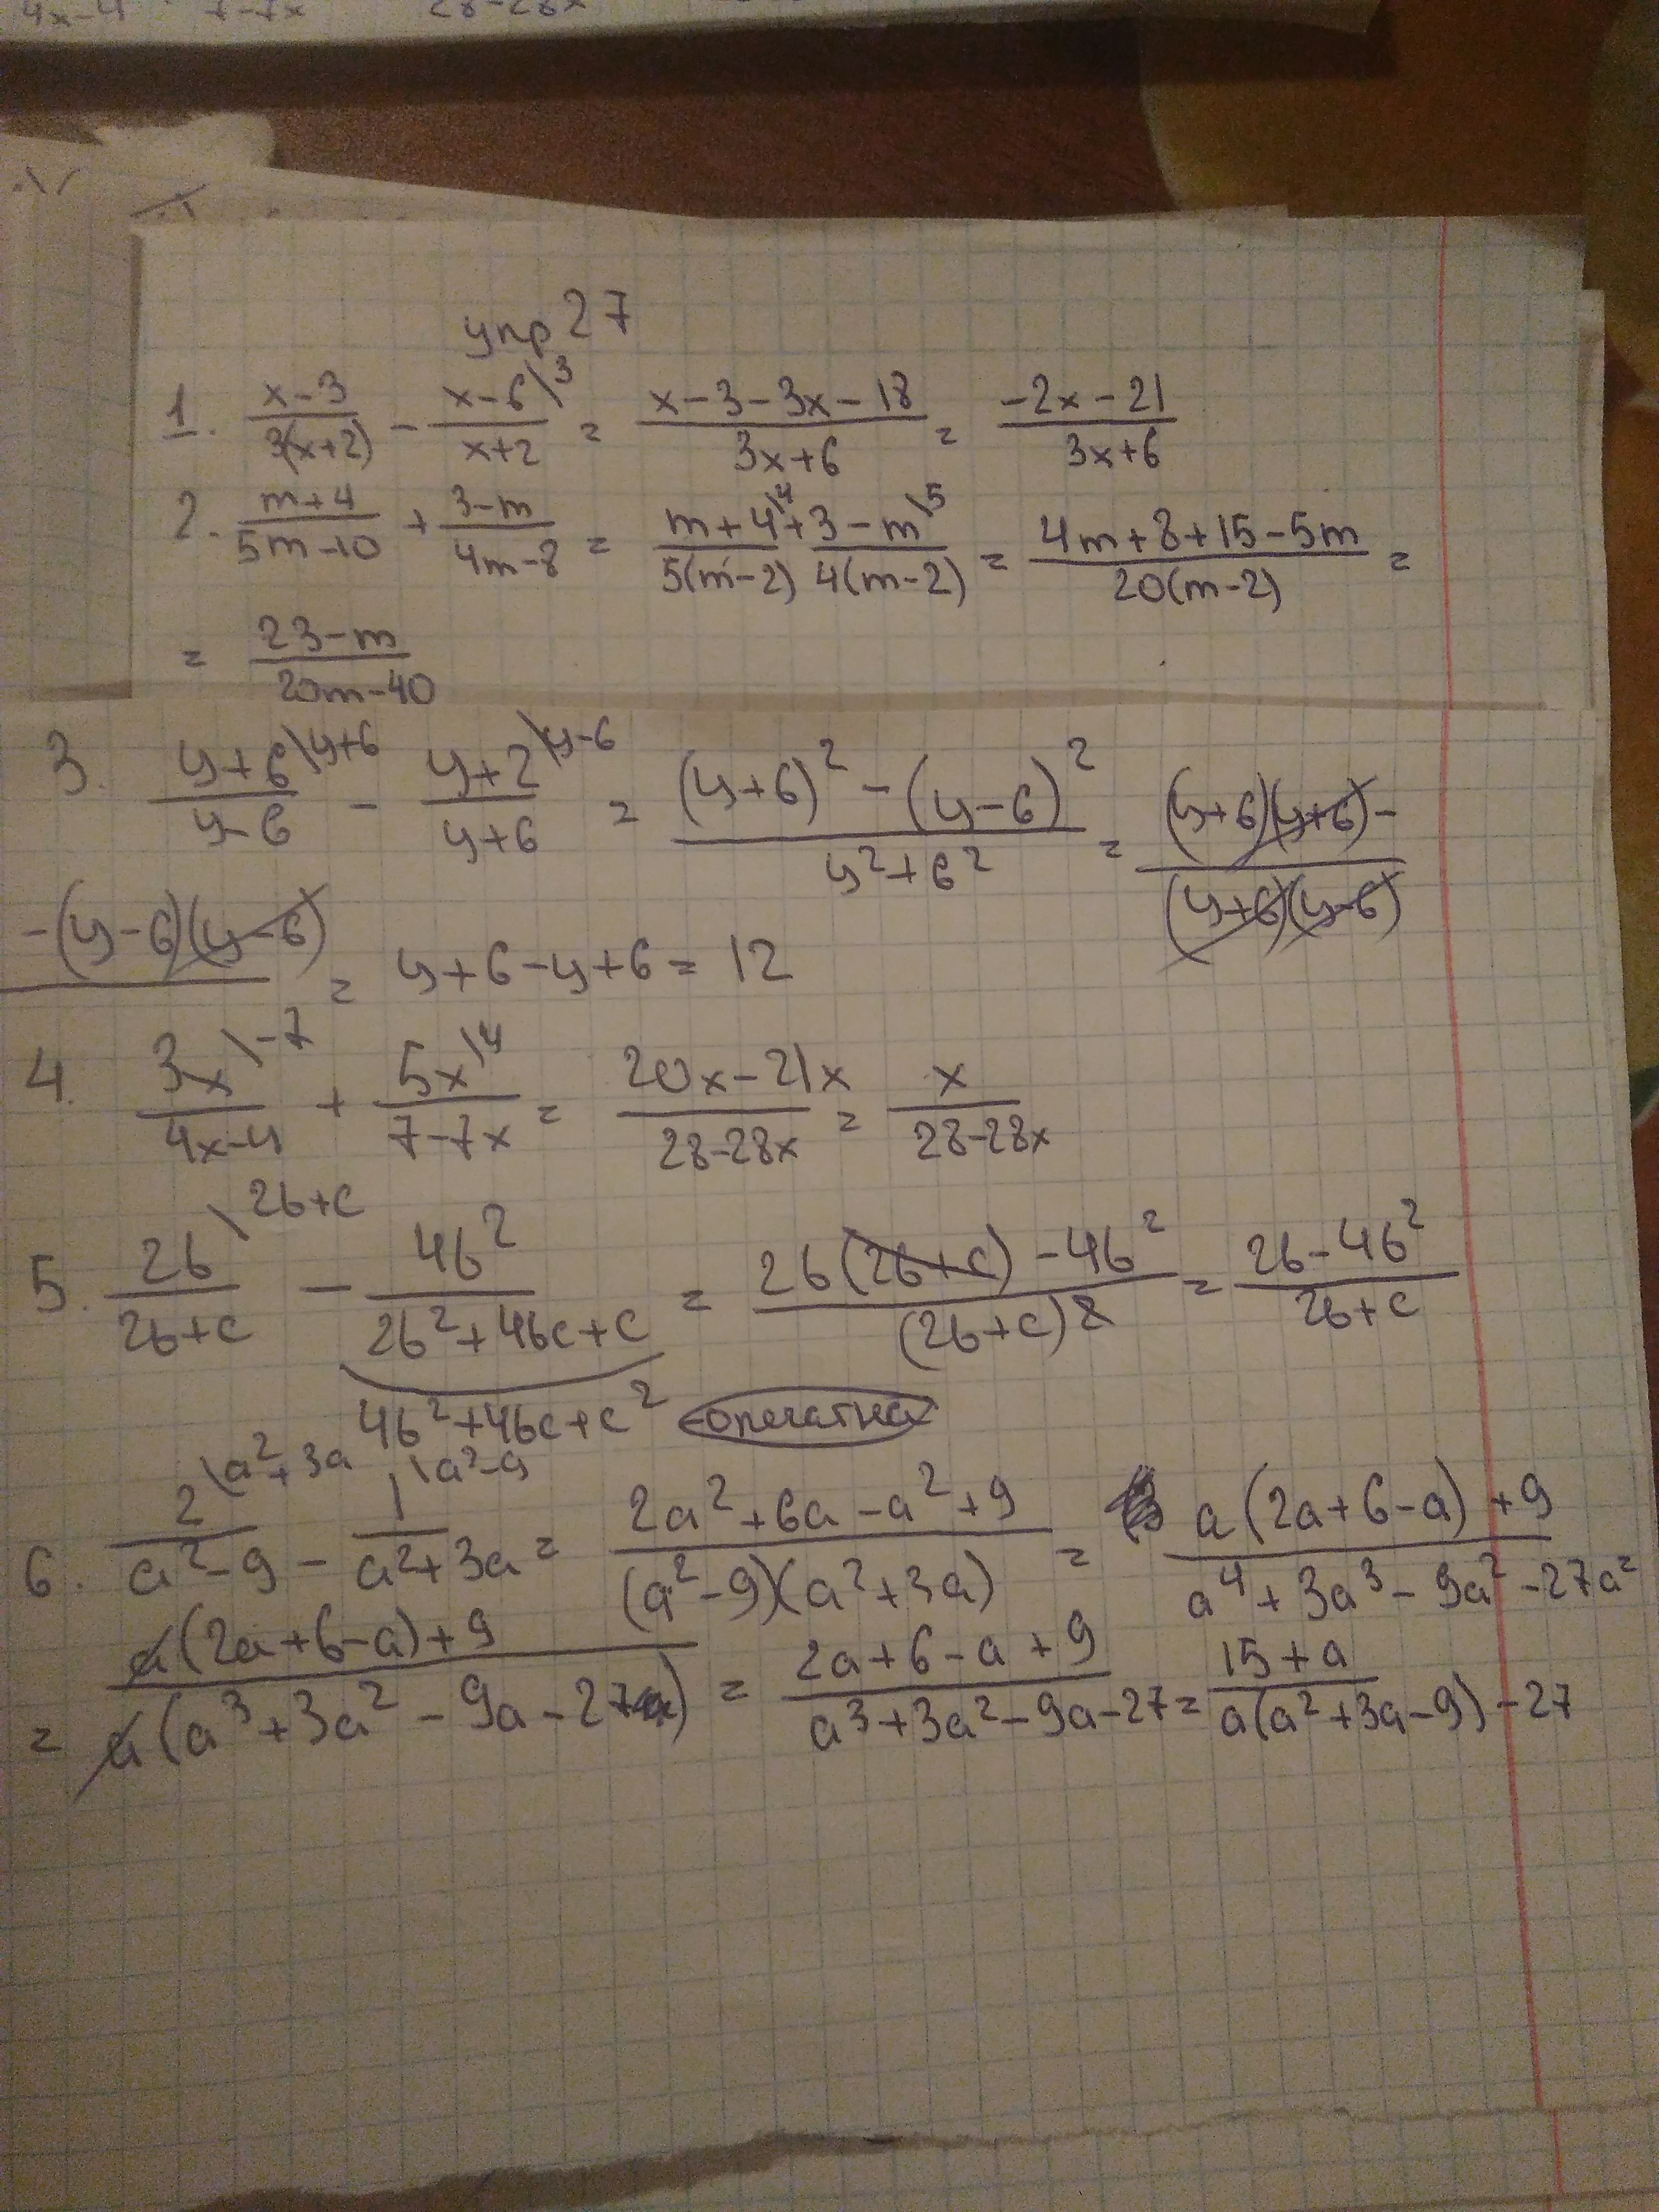 4x-4 7-7x 28-28x
упр 27
1. (x-3)/(3(x+2)) - (x-6\3)/(x+2) = (x-3-3x-18)/(3x+6) = (-2x-21)/(3x+6)
2. (m+4)/(5m-10) + (3-m)/(4m-8) = (m+4\4)/(5(m-2)) + (3-m\5)/(4(m-2)) = (4m+8+15-5m)/(20(m-2)) =
= (23-m)/(20m-40)
3. (y+6\y+6)/(y-6) - (y+2\y-6)/(y+6) = ((y+6)² - (y-6)²)/(y²+6²) = ((y+6)(y+6)-)/((y+6)(y-6))
-(y-6)(y-6) = y+6-y+6 = 12
4. (3x\-7)/(4x-4) + (5x\4)/(7-7x) = (20x-21x)/(28-28x) = x/(28-28x)
5. (2b\2b+c)/(2b+c) - 4b²/(2b²+4bc+c) = (2b(2b+c)-4b²)/((2b+c)²) = (2b-4b²)/(2b+c)
4b²+4bc+c² опечатка
6. (2\a²+3a)/(a²-9) - (1\a²-9)/(a²+3a) = (2a²+6a-a²+9)/((a²-9)(a²+3a)) = (a(2a+6-a)+9)/(a⁴+3a³-9a²-27a²)
= (a(2a+6-a)+9)/(a(a³+3a²-9a-27a)) = (2a+6-a+9)/(a³+3a²-9a-27) = (15+a)/(a(a²+3a-9)-27)